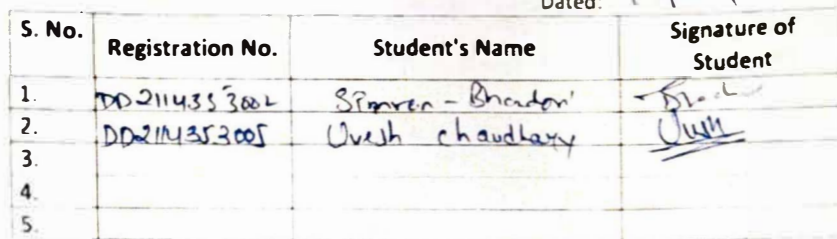 Dated:
S. No. Registration No. Student's Name Signature of Student
1. DD2114353002 Simren - Bhadori
2. DD2114353005 Uvesh chaudhary
3.
4.
5.